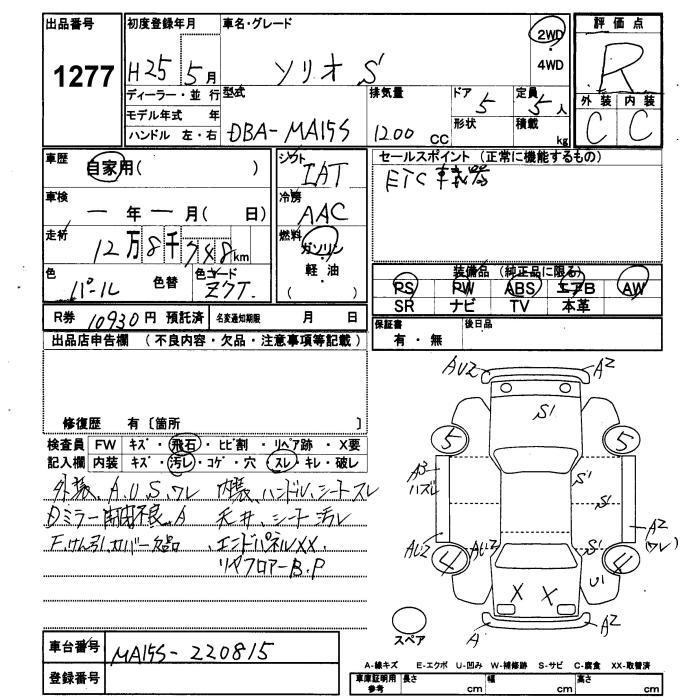 出品番号 1277
初度登録年月 H25 5月
車名・グレード ソリオ S
2WD
・
4WD
評価点 R
外装 内装
C C
ディーラー・並行
モデル年式 年
ハンドル 左・右
型式 DBA-MA15S
排気量 1200 CC
ドア 5
定員 5人
形状
積載 kg
車歴 自家用( )
車検 ー年ー月( 日)
走行 12万8千748km
色 パール 色替 色コード ZQT.
シフト IAT
冷房 AAC
燃料 ガソリン
・
軽油
( )
セールスポイント (正常に機能するもの)
ETC車載器
装備品 (純正品に限る)
PS PW ABS エアB AW
SR ナビ TV 本革
R券 10930円 預託済 名変通知期限 月 日
保証書 有・無
後日品
出品店申告欄 (不良内容・欠品・注意事項等記載)
修復歴 有 〔箇所 〕
検査員 FW キズ・飛石・ヒビ割・リペア跡・X要
記入欄 内装 キズ・汚レ・コゲ・穴・スレ・キレ・破レ
外装、A.U.S.ワレ 内装、ハンドル、シートスレ
Dミラー 不良、A 天井、シート汚レ
F.けん引カバー欠品 エンドパネルXX.
リヤフロアーB.P
AU2 A2
S1
5 5
A3
ハズレ
S1
S1
A2
(ワレ)
AU2 AU2 S1
4 4
U1
X X
A A2
スペア
車台番号 MA15S-220815
登録番号
A-線キズ E-エクボ U-凹み W-補修跡 S-サビ C-腐食 XX-取替済
車庫証明用
参考
長さ cm 幅 cm 高さ cm